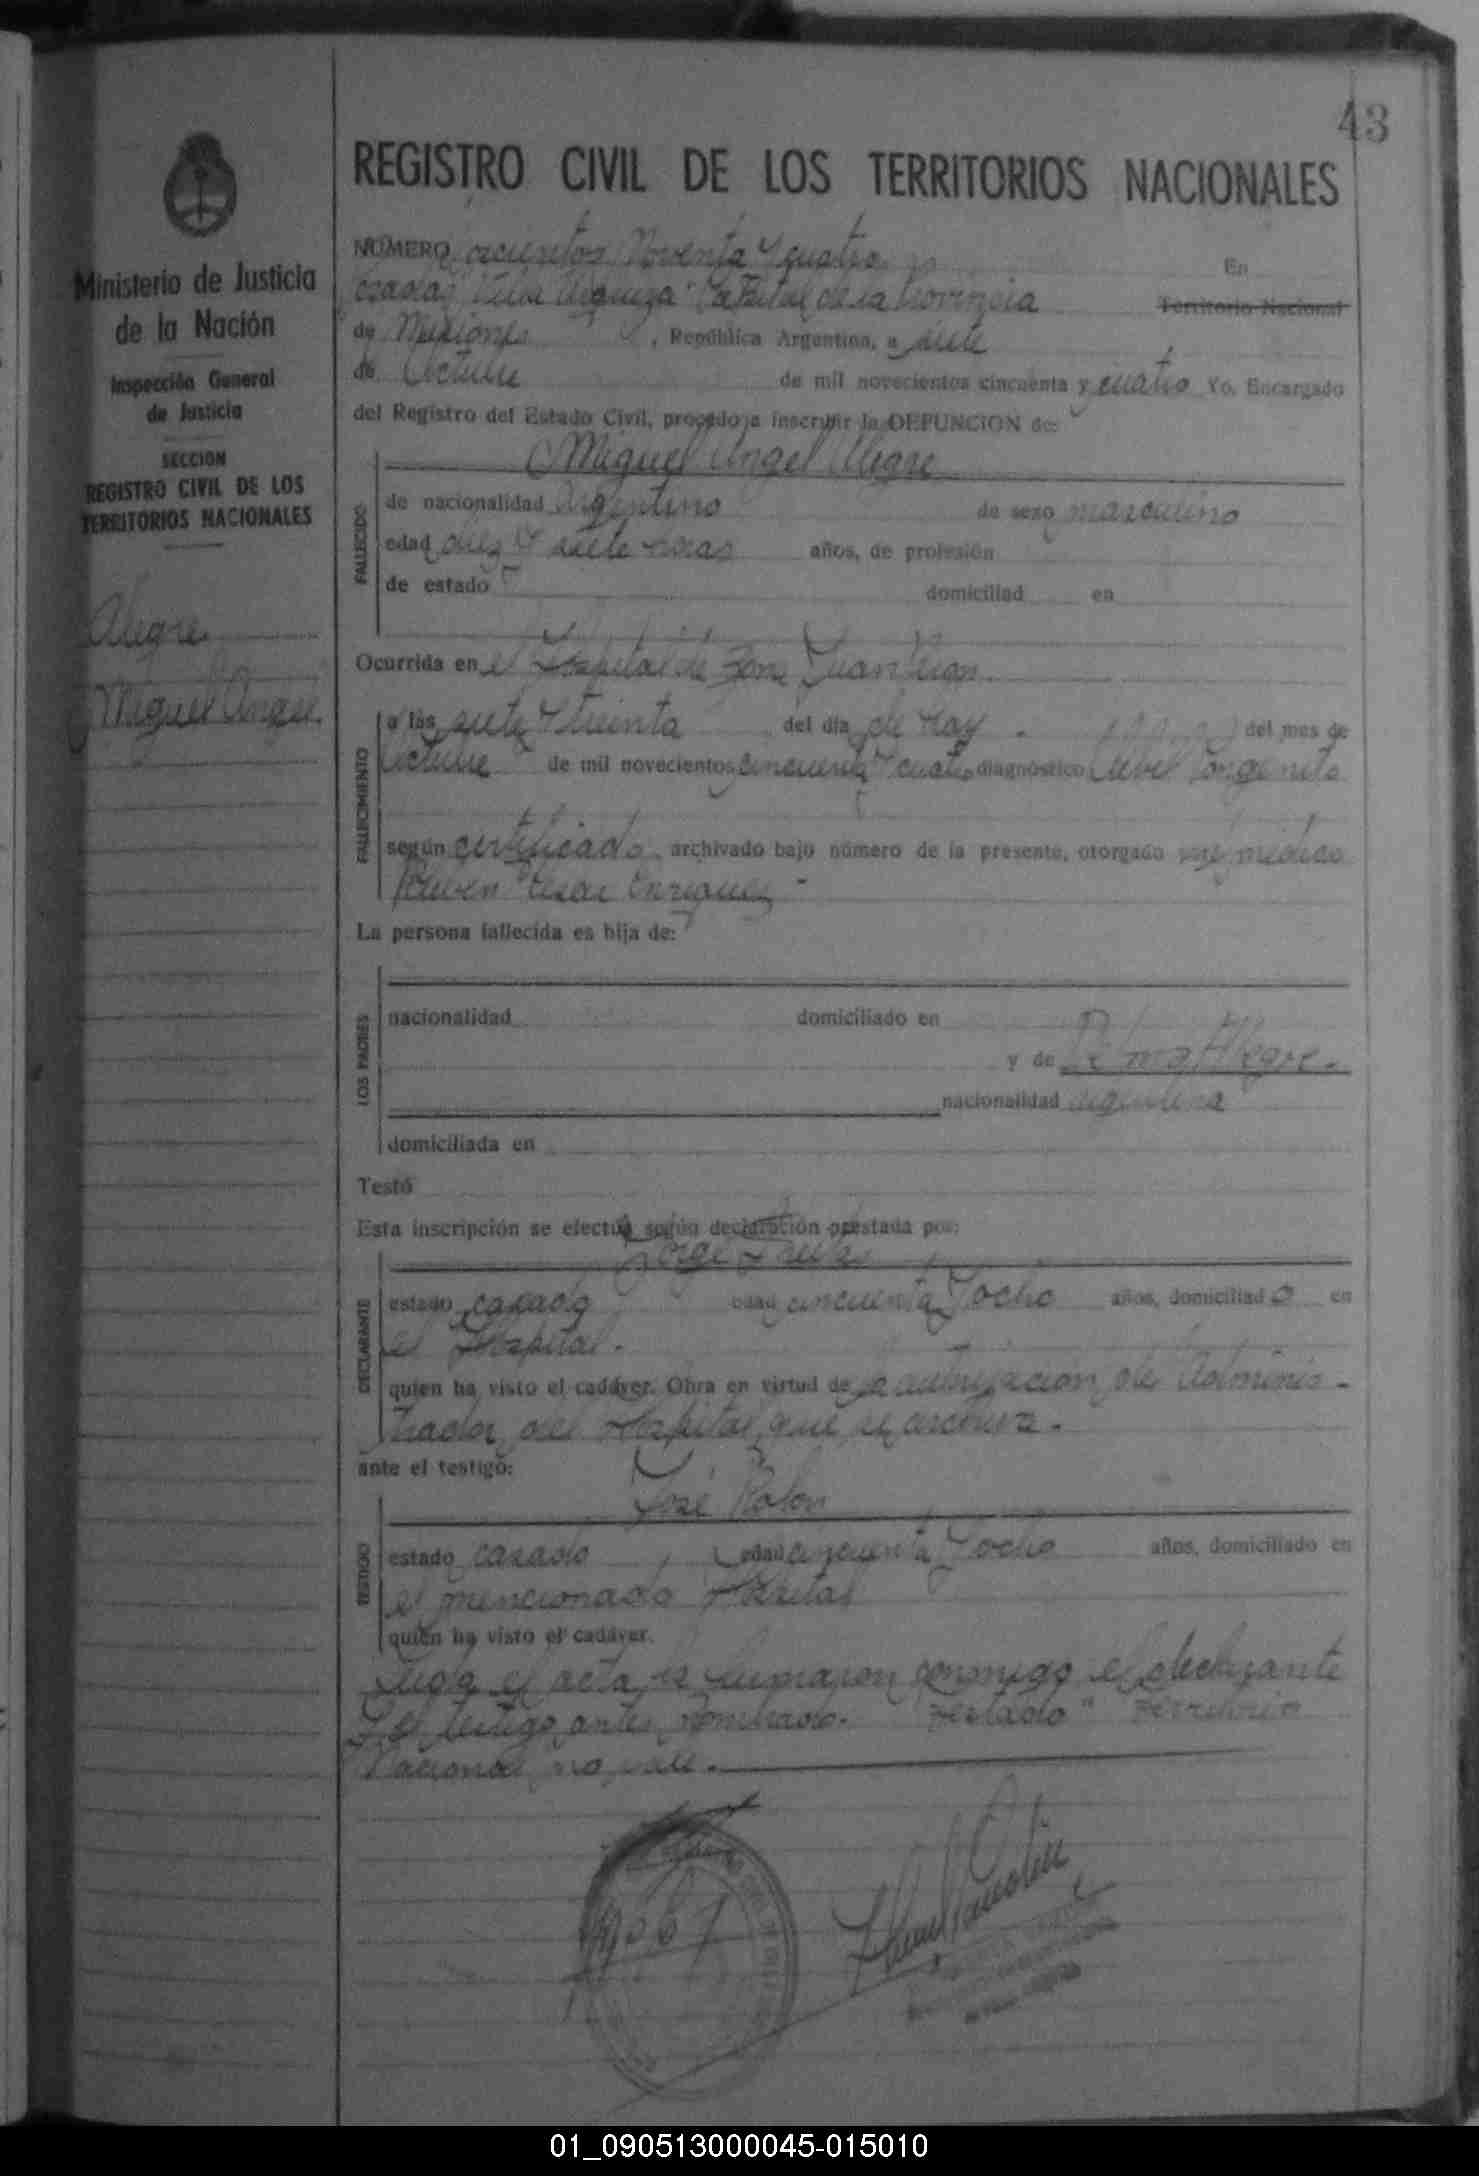 43
REGISTRO CIVIL DE LOS TERRITORIOS NACIONALES
Ministerio de Justicia
de la Nación
Inspección General
de Justicia
SECCION
REGISTRO CIVIL DE LOS
TERRITORIOS NACIONALES
Alegre
Miguel Angel
NÚMERO Noventa y cuatro En
Capital de la Provincia Territorio Nacional
de Misiones, República Argentina, a siete
de Octubre de mil novecientos cincuenta y cuatro Yo, Encargado
del Registro del Estado Civil, procedo a inscribir la DEFUNCION de:
Miguel Angel Alegre
FALLECIDO
de nacionalidad Argentino de sexo masculino
edad diez y siete horas años, de profesión
de estado domiciliad en
Ocurrida en el Hospital de Juan
FALLECIMIENTO
a las siete y treinta del día de hoy del mes de
Octubre de mil novecientos cincuenta y cuatro diagnóstico Debil Congenito
según certificado archivado bajo número de la presente, otorgado médico
Ruben Cesar Enriquez
La persona fallecida es hija de:
LOS PADRES
nacionalidad domiciliado en
y de Alegre.
nacionalidad argentina
domiciliada en
Testó
Esta inscripción se efectúa según declaración prestada por:
Jorge
DECLARANTE
estado casado edad cincuenta y ocho años, domiciliado en
el Hospital.
quien ha visto el cadáver. Obra en virtud de autorización del Adminis-
trador del Hospital que se archiva.
ante el testigo:
José Rolon
TESTIGO
estado casado edad cincuenta y ocho años, domiciliado en
el mencionado Hospital
quien ha visto el cadáver.
Leida el acta la firmaron conmigo el declarante
y el testigo antes nombrado. Testado "Territorio
Nacional no vale.
01_090513000045-015010